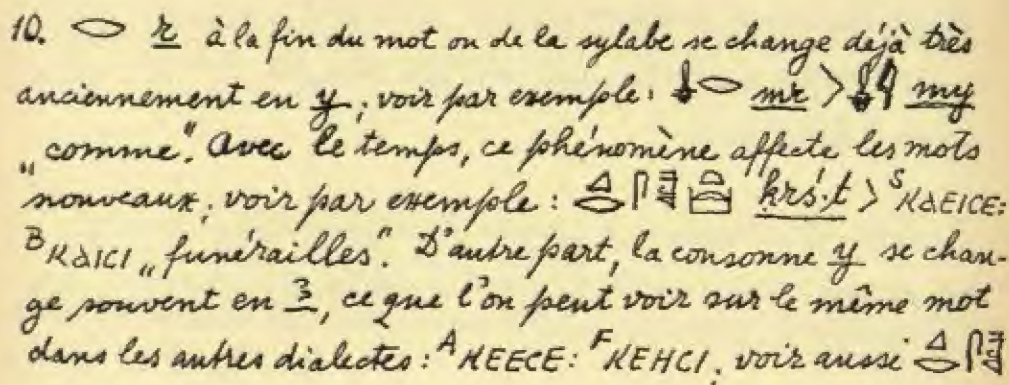 10. 𓂋 r à la fin du mot ou de la sylabe se change déjà très
anciennement en y; voir par exemple: 𓌳𓂋 mr > 𓌳𓇋 my
„comme". Avec le temps, ce phénomène affecte les mots
nouveaux; voir par exemple: ḳrś·t > ˢⲕⲁⲉⲓⲥⲉ:
ᴮⲕⲁⲓⲥⲓ „funérailles". D'autre part, la consonne y se chan-
ge souvent en ꜣ, ce que l'on peut voir sur le même mot
dans les autres dialectes: ᴬⲕⲉⲉⲥⲉ: ᶠⲕⲉⲏⲥⲓ; voir aussi